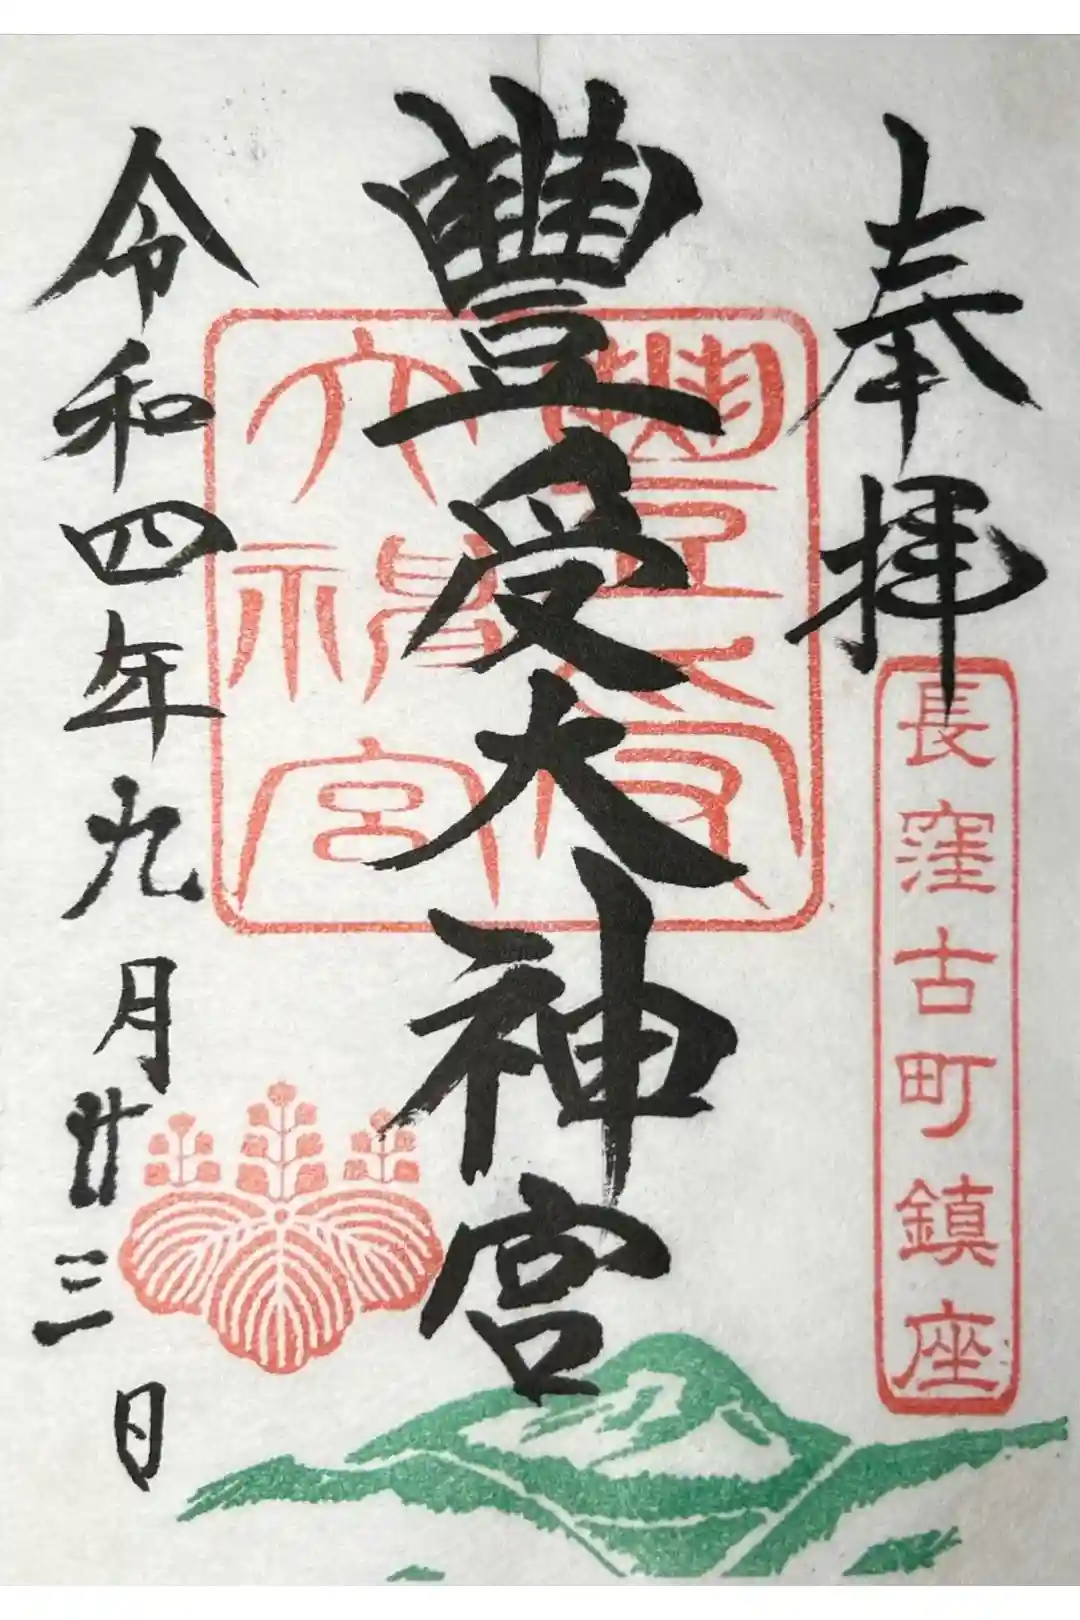 奉拝
長窪古町鎮座
豊受大神宮
豊受大神宮
令和四年九月廿三日